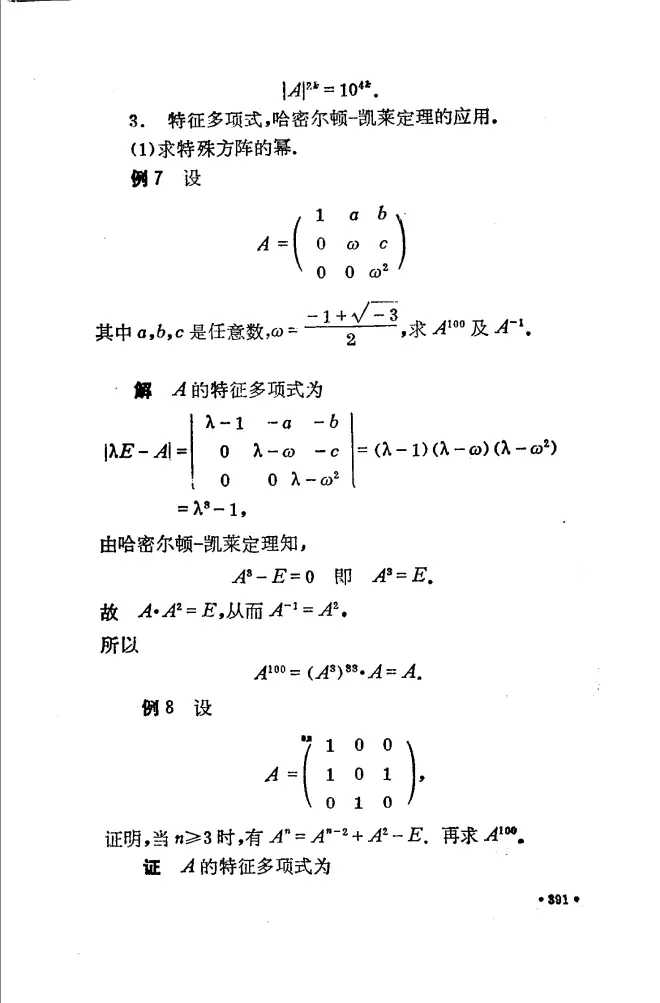 |A|²ᵏ = 10⁴ᵏ.
3. 特征多项式,哈密尔顿-凯莱定理的应用.
(1)求特殊方阵的幂.
例7 设
1 a b
A = ( 0 ω c )
0 0 ω²
其中a,b,c是任意数,ω = (-1+√-3)/2,求A¹⁰⁰及A⁻¹.
解 A的特征多项式为
λ-1 -a -b
|λE-A| = | 0 λ-ω -c | = (λ-1)(λ-ω)(λ-ω²)
0 0 λ-ω²
= λ³-1,
由哈密尔顿-凯莱定理知,
A³-E=0 即 A³=E.
故 A·A²=E,从而A⁻¹=A².
所以
A¹⁰⁰=(A³)³³·A=A.
例8 设
1 0 0
A = ( 1 0 1 ),
0 1 0
证明,当n≥3时,有Aⁿ=Aⁿ⁻²+A²-E. 再求A¹⁰⁰.
证 A的特征多项式为
·391·